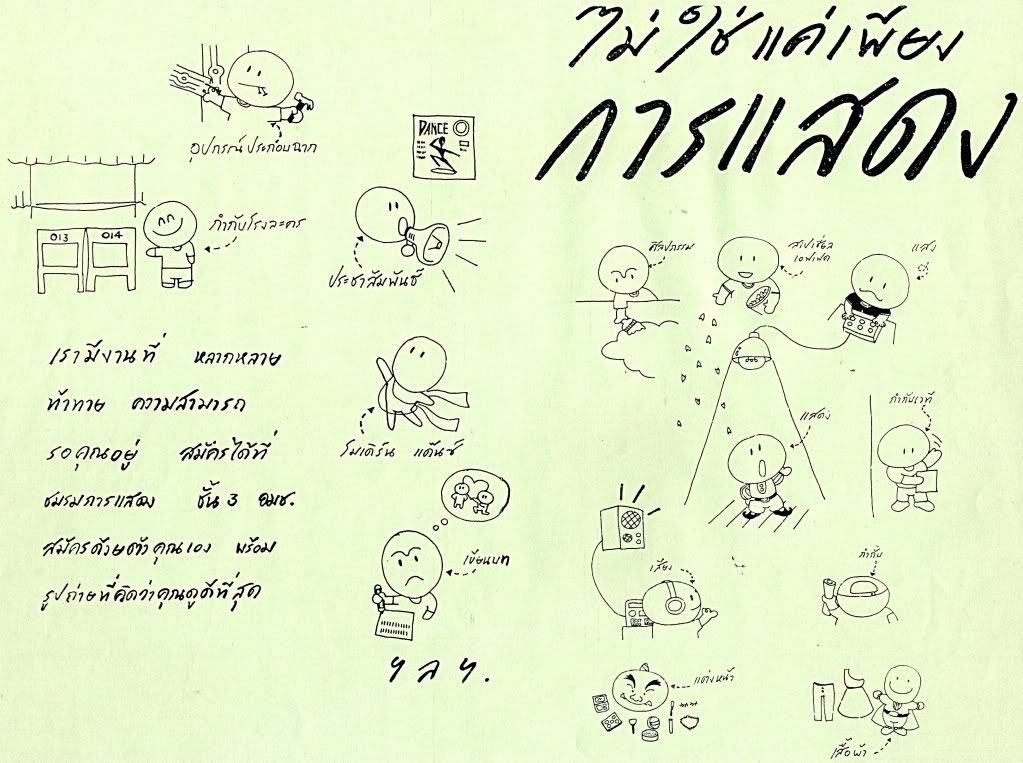 ไม่ใช่แค่เพียง
การแสดง
อุปกรณ์ประกอบฉาก
DANCE
013
014
กำกับโรงละคร
ประชาสัมพันธ์
เรามีงานที่ หลากหลาย
ท้าทาย ความสามารถ
รอคุณอยู่ สมัครได้ที่
ชมรมการแสดง ชั้น 3 อมช.
สมัครด้วยตัวคุณเอง พร้อม
รูปถ่ายที่คิดว่าคุณดูดีที่สุด
โมเดิร์น แด๊นซ์
เขียนบท
ฯ ล ฯ .
ศิลปกรรม
สเปเชี่ยล
เอฟเฟค
แสง
แสดง
กำกับเวที
เสียง
กำกับ
แต่งหน้า
เสื้อผ้า